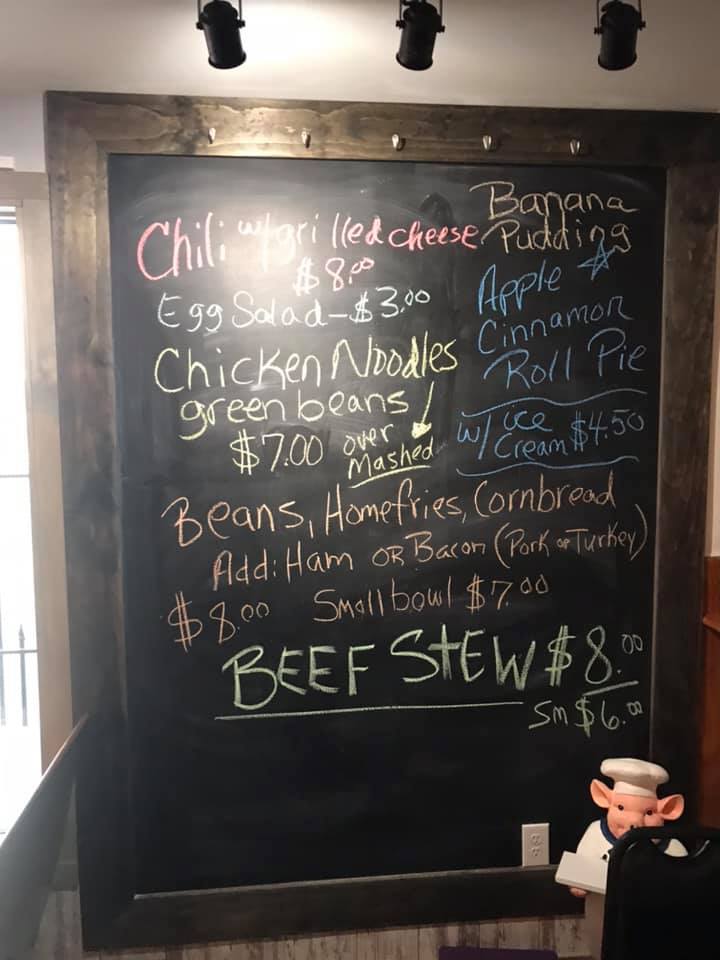 Chili w/grilled cheese
$8.00
Egg Salad-$3.00
Chicken Noodles
green beans
$7.00 over
Mashed
Banana
Pudding
Apple
Cinnamon
Roll Pie
w/ ice
Cream $4.50
Beans, Homefries, Cornbread
Add: Ham OR Bacon (Pork or Turkey)
$8.00 Small bowl $7.00
BEEF STEW $8.00
Sm $6.00